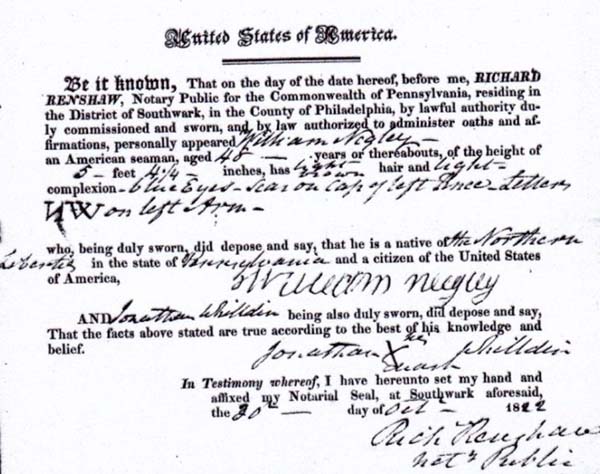 United States of America.
Be it known, That on the day of the date hereof, before me, RICHARD
RENSHAW, Notary Public for the Commonwealth of Pennsylvania, residing in
the District of Southwark, in the County of Philadelphia, by lawful authority du-
ly commissioned and sworn, and by law authorized to administer oaths and af-
firmations, personally appeared William Negley
an American seaman, aged 48 — years or thereabouts, of the height of
5 — feet 4 1/4 — inches, has light brown hair and light —
complexion — blue Eyes — Scar on Cap of left Knee — Letters
on left Arm —
who, being duly sworn, did depose and say, that he is a native of the Northern
Liberties in the state of Pennsylvania and a citizen of the United States
of America,
William Neegley
AND Jonathan Whilldin being also duly sworn, did depose and say,
That the facts above stated are true according to the best of his knowledge and
belief.
his
Jonathan X Whilldin
mark
In Testimony whereof, I have hereunto set my hand and
affixed my Notarial Seal, at Southwark aforesaid,
the 30th — day of Oct — 1822
Rich Renshaw
Not. Public